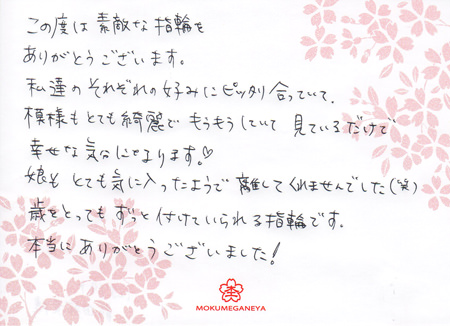 この度は素敵な指輪を
ありがとうございます。
私達のそれぞれの好みにピッタリ合っていて、
模様もとても綺麗でもうもうしていて見ているだけで
幸せな気分になります。♡
娘もとても気に入ったようで離してくれませんでした(笑)
歳をとってもずっと付けていられる指輪です。
本当にありがとうございました!
MOKUMEGANEYA